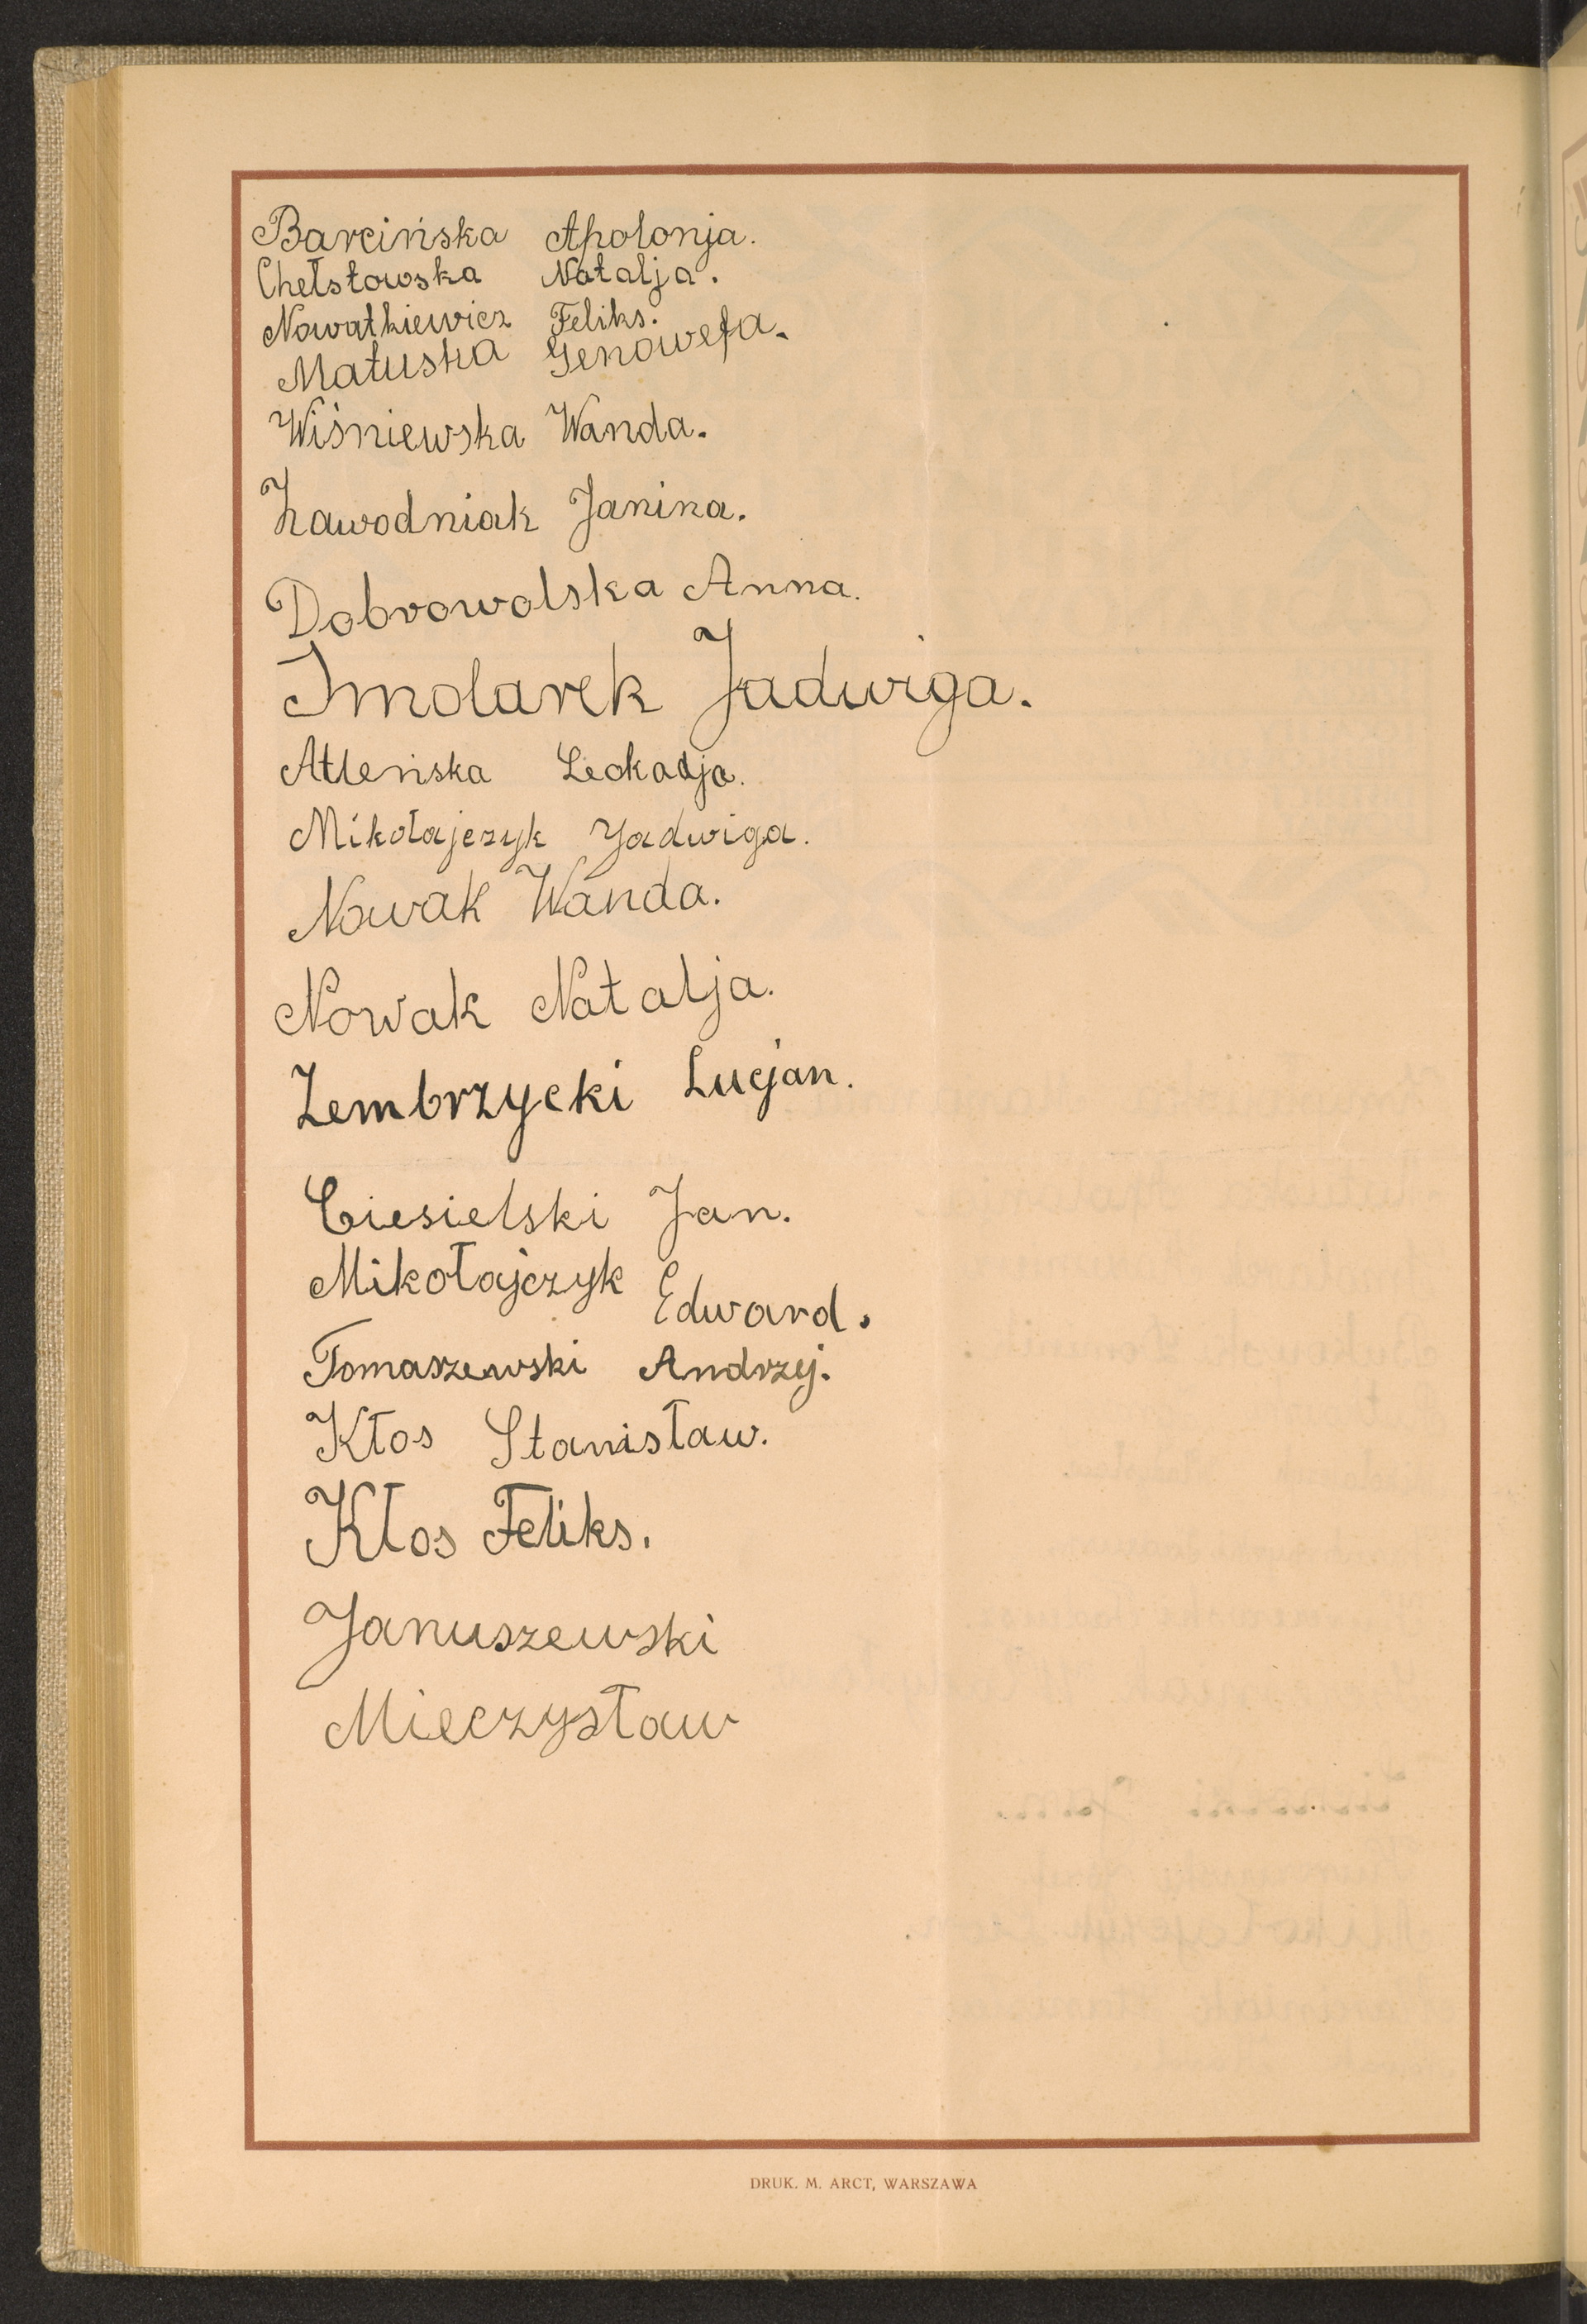 Barcińska Apolonja.
Chełstowska Natalja.
Nowatkiewicz Feliks.
Matuska Genowefa.
Wiśniewska Wanda.
Zawodniak Janina.
Dobrowolska Anna.
Smolarek Jadwiga.
Atleńska Leokadja.
Mikołajczyk Jadwiga.
Nowak Wanda.
Nowak Natalja.
Zembrzycki Lucjan.
Ciesielski Jan.
Mikołajczyk Edward.
Tomaszewski Andrzej.
Kłos Stanisław.
Kłos Feliks.
Januszewski
Mieczysław
DRUK. M. ARCT, WARSZAWA